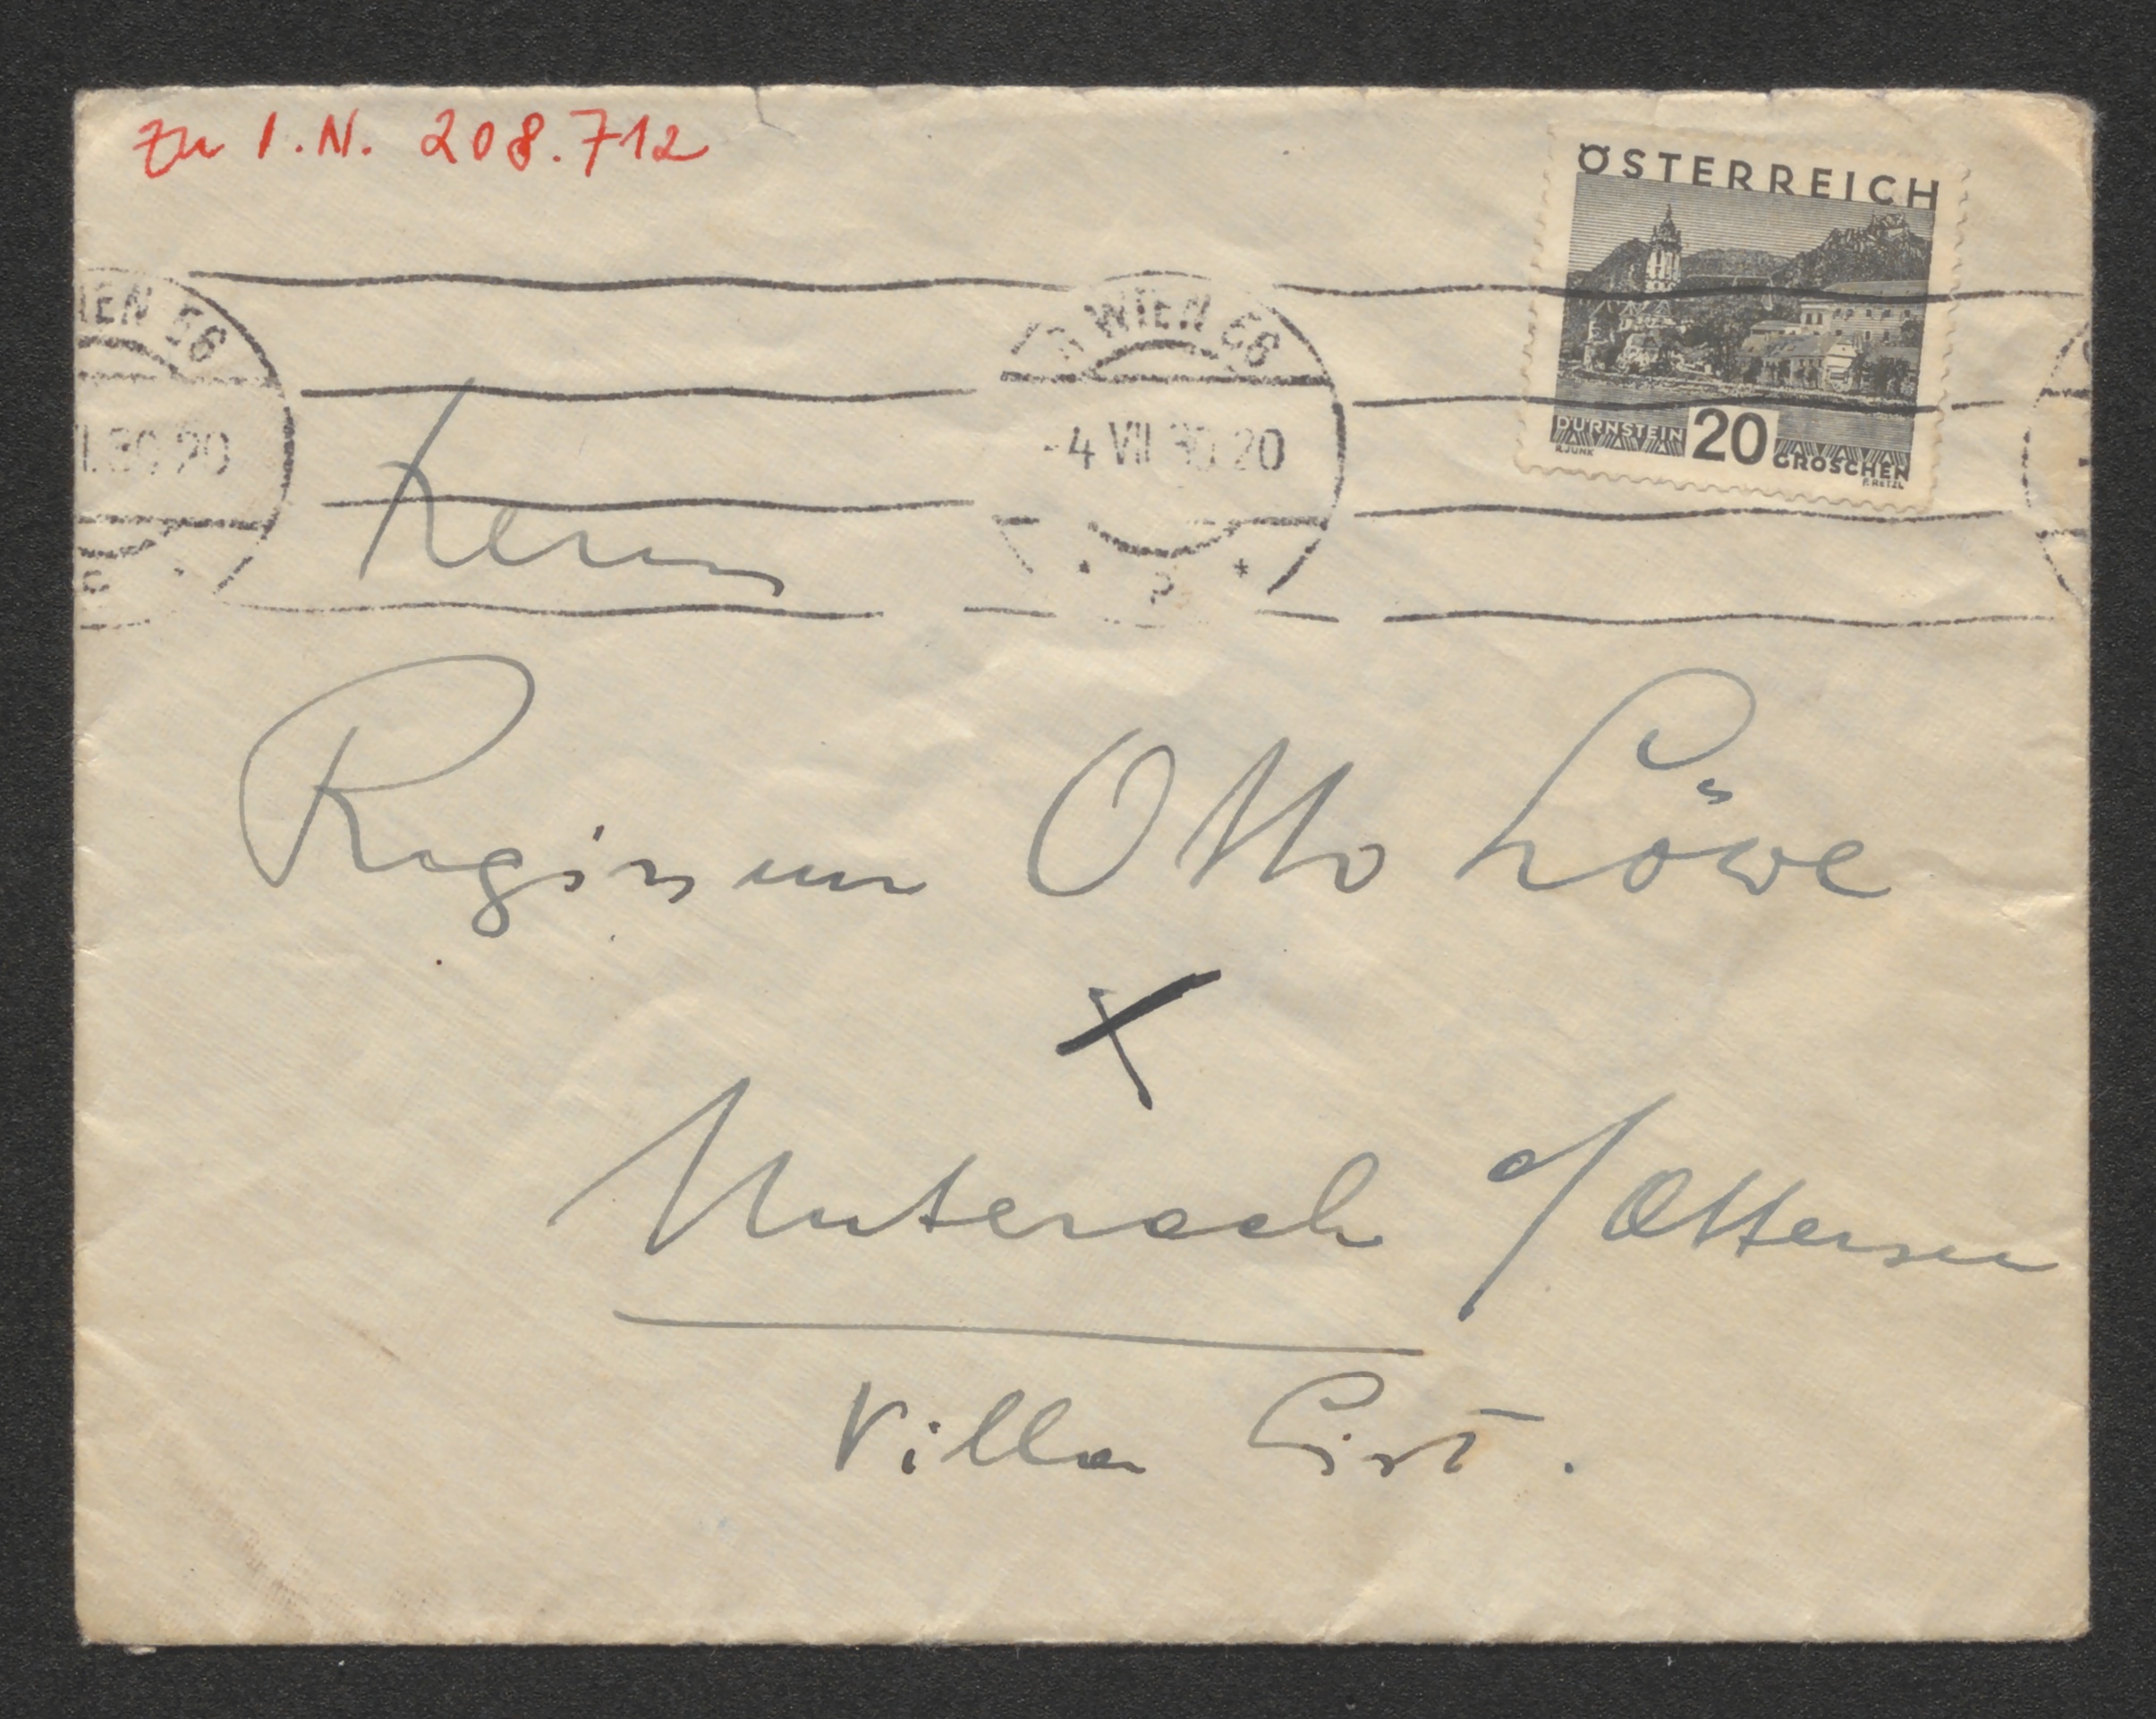 zu I.N. 208.712
ÖSTERREICH
DÜRNSTEIN 20 GROSCHEN
R.JUNK
F.RETZL
WIEN 56
-4 VII 30 20
IEN 56
I.30 20
Herrn
Regisseur Otto Löwe
Unterach a/Attersee
Villa